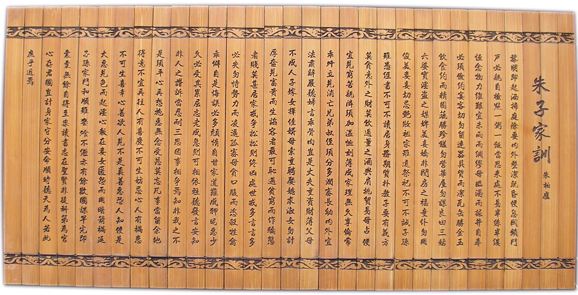 朱子家訓 朱柏廬
黎明即起洒掃庭除要內外整潔既昏便息關鎖門
戶必親自檢點一粥一飯當思來處不易半絲半縷
恆念物力維艱宜未雨而綢繆毋臨渴而掘井自奉
必須儉約宴客切勿留連器具質而潔瓦缶勝金玉
飲食約而精園蔬勝珍饈勿營華屋勿謀良田三姑
六婆實淫盜之媒婢美妾嬌非閨房之福童仆勿用
俊美妻妾切忌艷妝祖宗雖遠祭祀不可不誠子孫
雖愚經書不可不讀居身務期質樸教子要有義方
莫貪意外之財莫飲過量之酒與肩挑貿易毋占便
宜見窮苦親鄰須加溫恤刻薄成家理無久享倫常
乖舛立見消亡兄弟叔侄須分多潤寡長幼內外宜
法肅辭嚴聽婦言乖骨肉豈是丈夫重資財薄父母
不成人子嫁女擇佳婿毋索重聘娶媳求淑女勿計
厚奩見富貴而生諂容者最可恥遇貧窮而作驕態
者賤莫甚居家戒爭訟訟則終凶處世戒多言言多
必失勿恃勢力而凌逼孤寡毋貪口腹而恣殺牲禽
乖僻自是悔誤必多頹惰自甘家道難成狎昵惡少
久必受其累屈志老成急則可相依輕聽發言安知
非人之譖訴當忍耐三思因事相爭焉知非我之不
是須平心再想施惠無念受恩莫忘凡事當留餘地
得意不宜再往人有喜慶不可生妒忌心人有禍患
不可生喜幸心善欲人見不是真善惡恐人知便是
大惡見色而起淫心報在妻女匿怨而用暗箭禍延
子孫家門和順雖饔飧不繼亦有餘歡國課早完即
囊橐無餘自得至樂讀書志在聖賢非徒科第為官
心存君國豈計身家守分安命順時聽天為人若此
庶乎近焉